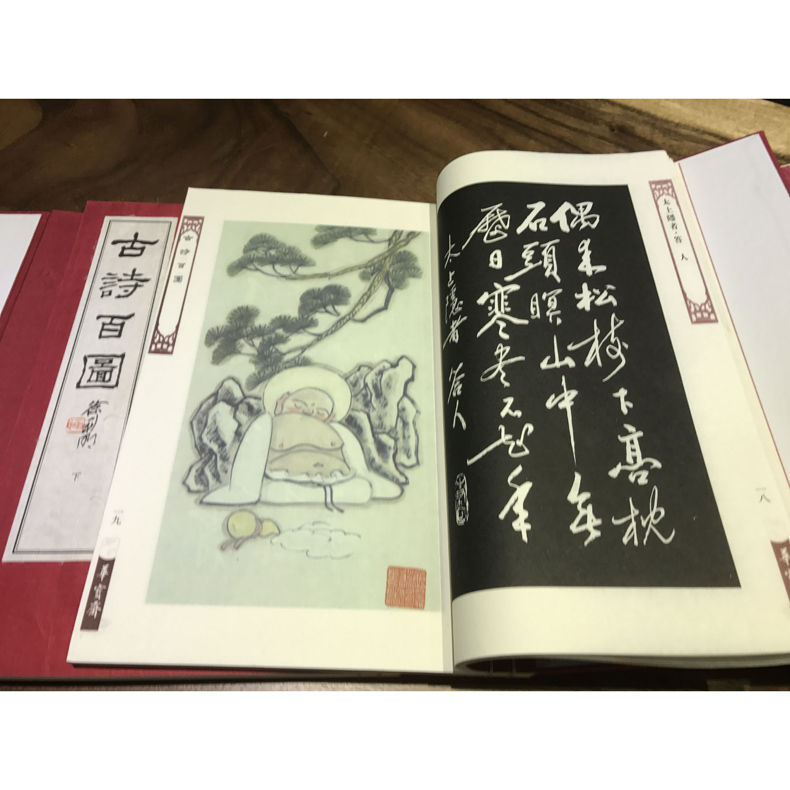 太上隱者·答人
偶来松树下高枕
石頭瞑山中無
曆日寒尽不知年
太上隱者 答人
一八
古詩百圖
一九
華寶齋
古詩百圖
下